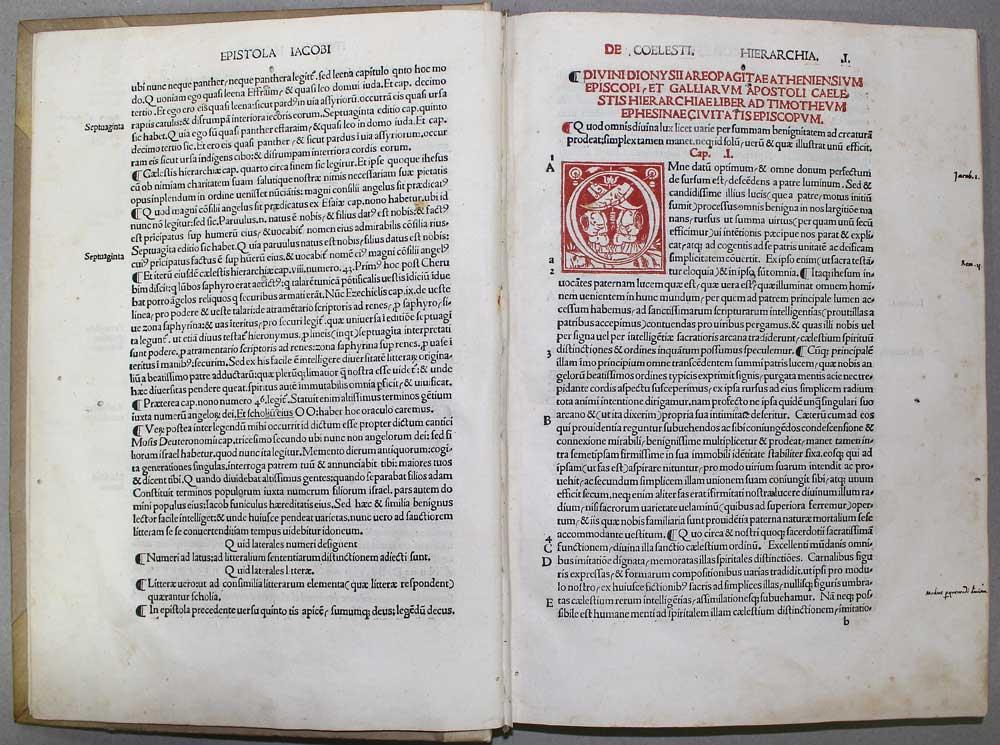 EPISTOLA IACOBI
ubi nunc neque panther/neque panthera legit̃. sed leena capitulo qnto hoc mo
do. Quoniam ego quasi leena Effraim/ & quasi leo domui iuda. Et cap. decimo
tertio. Et ego ero eis quasi leena: sicut pardꝰ in uia assyriorũ. occurrã eis quasi ursa
raptis catulis: & disrumpã interiora iecoris eorum. Septuaginta editio cap. quinto
Septuaginta
sic habet. Quia ego sũ quasi panther effraim/ & quasi leo in domo iuda. Et cap.
decimo tertio sic. Et ero eis quasi panther / & sicut pardus i uia assyriorum/ occur
ram eis sicut ursa indigens cibo: & disrumpam interriora cordis eorum.
¶ Cælestis hierarchiæ cap. quarto circa finem sic legitur. Et ipse quoque ihesus
cũ ob nimiam charitatem suam salutique nostræ nimis necessariam suæ pietatis
opus inplendum in ordine uenisset nũciãtis: magni consilii angelus sit prædicatꝰ
¶ Quod magni cõsilii angelus sit prædicatus ex Esaiæ cap. nono habetur/ ubi id
nunc nõ legitur: sed sic. Paruulus. n. natus ẽ nobis/ & filius datꝰ est nobis: & factꝰ
est pricipatus sup humerũ eius/ & uocabit̃ nomen eius admirabilis cõsiliarius.
Septuagita editio sic habet. Quia paruulus natus est nobis/ filius datus est nobis:
Septuaginta
cuiꝰ pricipatus factus ẽ sup hũerũ eius/ & uocabit̃ nomẽ eiꝰ magni cõsilii angelꝰ
¶ Et iterũ eiusdẽ cælestis hierarchiæ cap. viii. numero. 43. Primꝰ hoc post Cheru
linea/ pro podere & ueste talari: de atramẽtario scriptoris ad renes/
sunt podere. p atramentario scriptoris ad renes: zona saphyrina sup renes.
teritus i manibꝰ: securim. Sed ex his facile ẽ intelligere diuersitatẽ litteraꝝ origina
hæc diuersitas pendere queat. spiritus autẽ immutabilis omnia pficit/ & uiuificat.
¶ Præterea cap. nono numero 46. legit̃. Statuit enim altissimus terminos gẽtium
iuxta numerũ angeloꝝ dei. Et scholiũ eius OO: haber hoc oraculo caremus.
¶ Veꝝ postea inter legendũ mihi occurrit id dictum esse propter dictum cantici
Mosis Deuteronomii cap. tricesimo secundo ubi nunc non angelorum dei: sed fi
liorum israel habetur. quod nunc ita legitur. Memento dierum antiquorum: cogi
ta generationes singulas. interroga patrem tuũ & annunciabit tibi: maiores tuos
& dicent tibi. Quando diuidebat altissimus gentes: quando separabat filios adam
Constituit terminos populorum iuxta numerum filiorum israel. pars autem do
mini populus eius: Iacob funiculus hæreditatis eius. Sed hæc & similia benignus
lector facile intelliget: & unde huiusce pendeat uarietas. nunc uero ad sanctiorem
litteram se se conuertendi iam tempus uidebitur idoneum.
Quid laterales numeri designent
¶ Numeri ad latus: ad litteralium sententiarum distinctionem adiecti sunt.
Quid laterales litteræ.
¶ Litteræ uero: ut ad consimilia litterarum elementa (quæ litteræ respondent)
quærantur scholia.
¶ In epistola precedente uersu quinto
DE COELESTI. HIERARCHIA. .I.
¶ DIVINI DIONYSII AREOPAGITAE ATHENIENSIVM
EPISCOPI/ ET GALLIARVM APOSTOLI CAELE
STIS HIERARCHIAE LIBER AD TIMOTHEVM
EPHESINAE CIVITATIS EPISCOPVM.
¶ Quod omnis diuina lux licet uarie per summam benignitatem ad creaturã
prodeat; simplex tamen manet. neq; id solũ/ uerũ & quæ illustrat unũ efficit.
Cap. .I.
1
A
O
Mne datũ optimum/ & omne donum perfectũ
de sursum est/ descẽdens a patre luminum. Sed &
Jacob. 1.
candidissime illius lucis (quæ a patre/ motus initiũ
sumit) processus omnis benigna in nos largitiõe ma
nans/ rursus ut summa uirtus (per quam unũ secũ
efficimur) ui interiori præcipue nos parat & expli
cat/ atq; ad cogentis ad se patris unitatẽ ac deificam
a
simplicitatem cõuertit. Ex ipso enim (ut sacra testã
2
tur eloquia) & in ipsũ sũt omnia. ¶ Itaq; ihesum in
uocãtes paternam lucem quæ est/ quæ uera est/ quæ illuminat omnem homi
nem uenientem in hunc mundum/ per quem ad patrem principale lumen ac
cessum habemus/ ad sanctissimarum scripturarum intelligentias (proutillas a
patribus accepimus) contuendas pro uiribus pergamus. & quas illi nobis uel
per signa uel per intelligẽtiæ sacratioris arcana tradiderunt/ cælestium spirituũ
3
distinctiones & ordines inquãtum possumus speculemur. ¶ Cũq; principalẽ
illam imo principium omne transcẽdentem summi patris lucem/ quæ nobis an
gelorũ beatissimos ordines typicis exprimit signis/ purgatis mentis acie nec tre
pidante cordis aspectu susceperimus/ ex ipsa rursus ad eius simplicem radium
rota animi intentione dirigamur. nam profecto ne ipsa quidẽ unq̃ singulari suo
B
arcano & (ut ita dixerim) propria sua intimitate deseritur. Cæterũ cum ad eos
qui prouidentia reguntur subuehendos ac sibi coniungẽdos condescensione &
connexione mirabili/ benignissime multiplicetur & prodeat/ manet tamen in
tra semetipsam firmissime in sua immobili idẽtitate stabiliter fixa. eosq; qui ad
ipsam (ut fas est) aspirare nituntur/ pro modo uirium suarum intendit ac pro
uehit/ ac secundum simplicem illam unionem suam coniungit sibi/ atq; unum
efficit secum. neq; enim aliter fas erat infirmitati nostræ lucere diuinum illum ra
dium/ nisi sacrorum uarietate uelaminũ (quibus ad superiora ferremur) oper
tum/ & iis quæ nobis familiaria sunt prouidẽtia paterna naturæ mortalium sese
4
accommodante uestitum. ¶ Quo circa & nostri quoq; sacerdotii sacratissimã
C
functionem/ diuina illa sanctio cælestium ordinũ. Excellenti mũdanis omni
D
bus imitatiõe dignata/ memoratas illas spiritales distinctiões. Carnalibus figu
ris expressas/ & formarum compositionibus uarias tradidit. ut ipsi pro modu
lo nostro/ ex huiusce fictionibꝰ sacris ad simplices illas/ nullisq; figuris umbra
E
tas cælestium rerum intelligẽtias/ assimilationesq; subuehamur. Nã neq; pos
sibile est humane menti ad spiritalem illam cælestium distinctionem/ imitatio
b